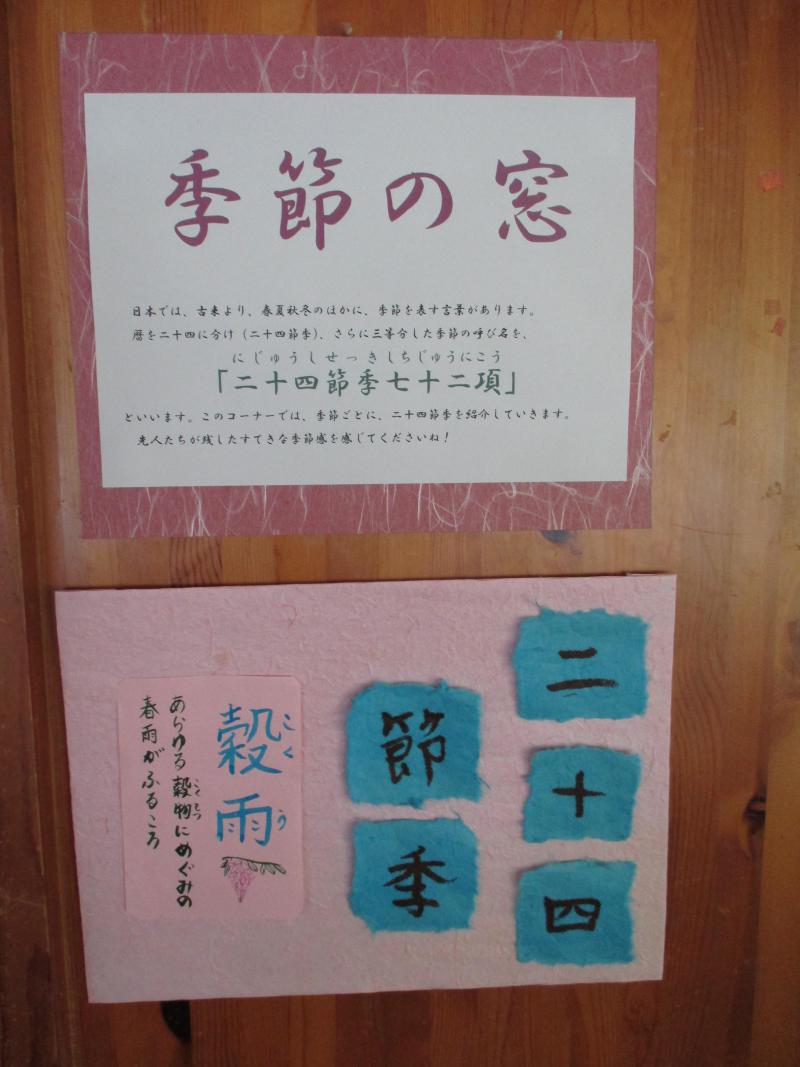 季節の窓
日本では、古来より、春夏秋冬のほかに、季節を表す言葉があります。
暦を二十四に分け（二十四節季）、さらに三等分した季節の呼び名を、
にじゅうしせっきしちじゅうにこう
「二十四節季七十二項」
といいます。このコーナーでは、季節ごとに、二十四節季を紹介していきます。
先人たちが残したすてきな季節感を感じてくださいね！
二十四
節季
穀雨
こくう
あらゆる穀物にめぐみの
こくもつ
春雨がふるころ